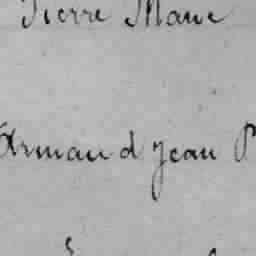 Pierre Marie
Armand Jean P